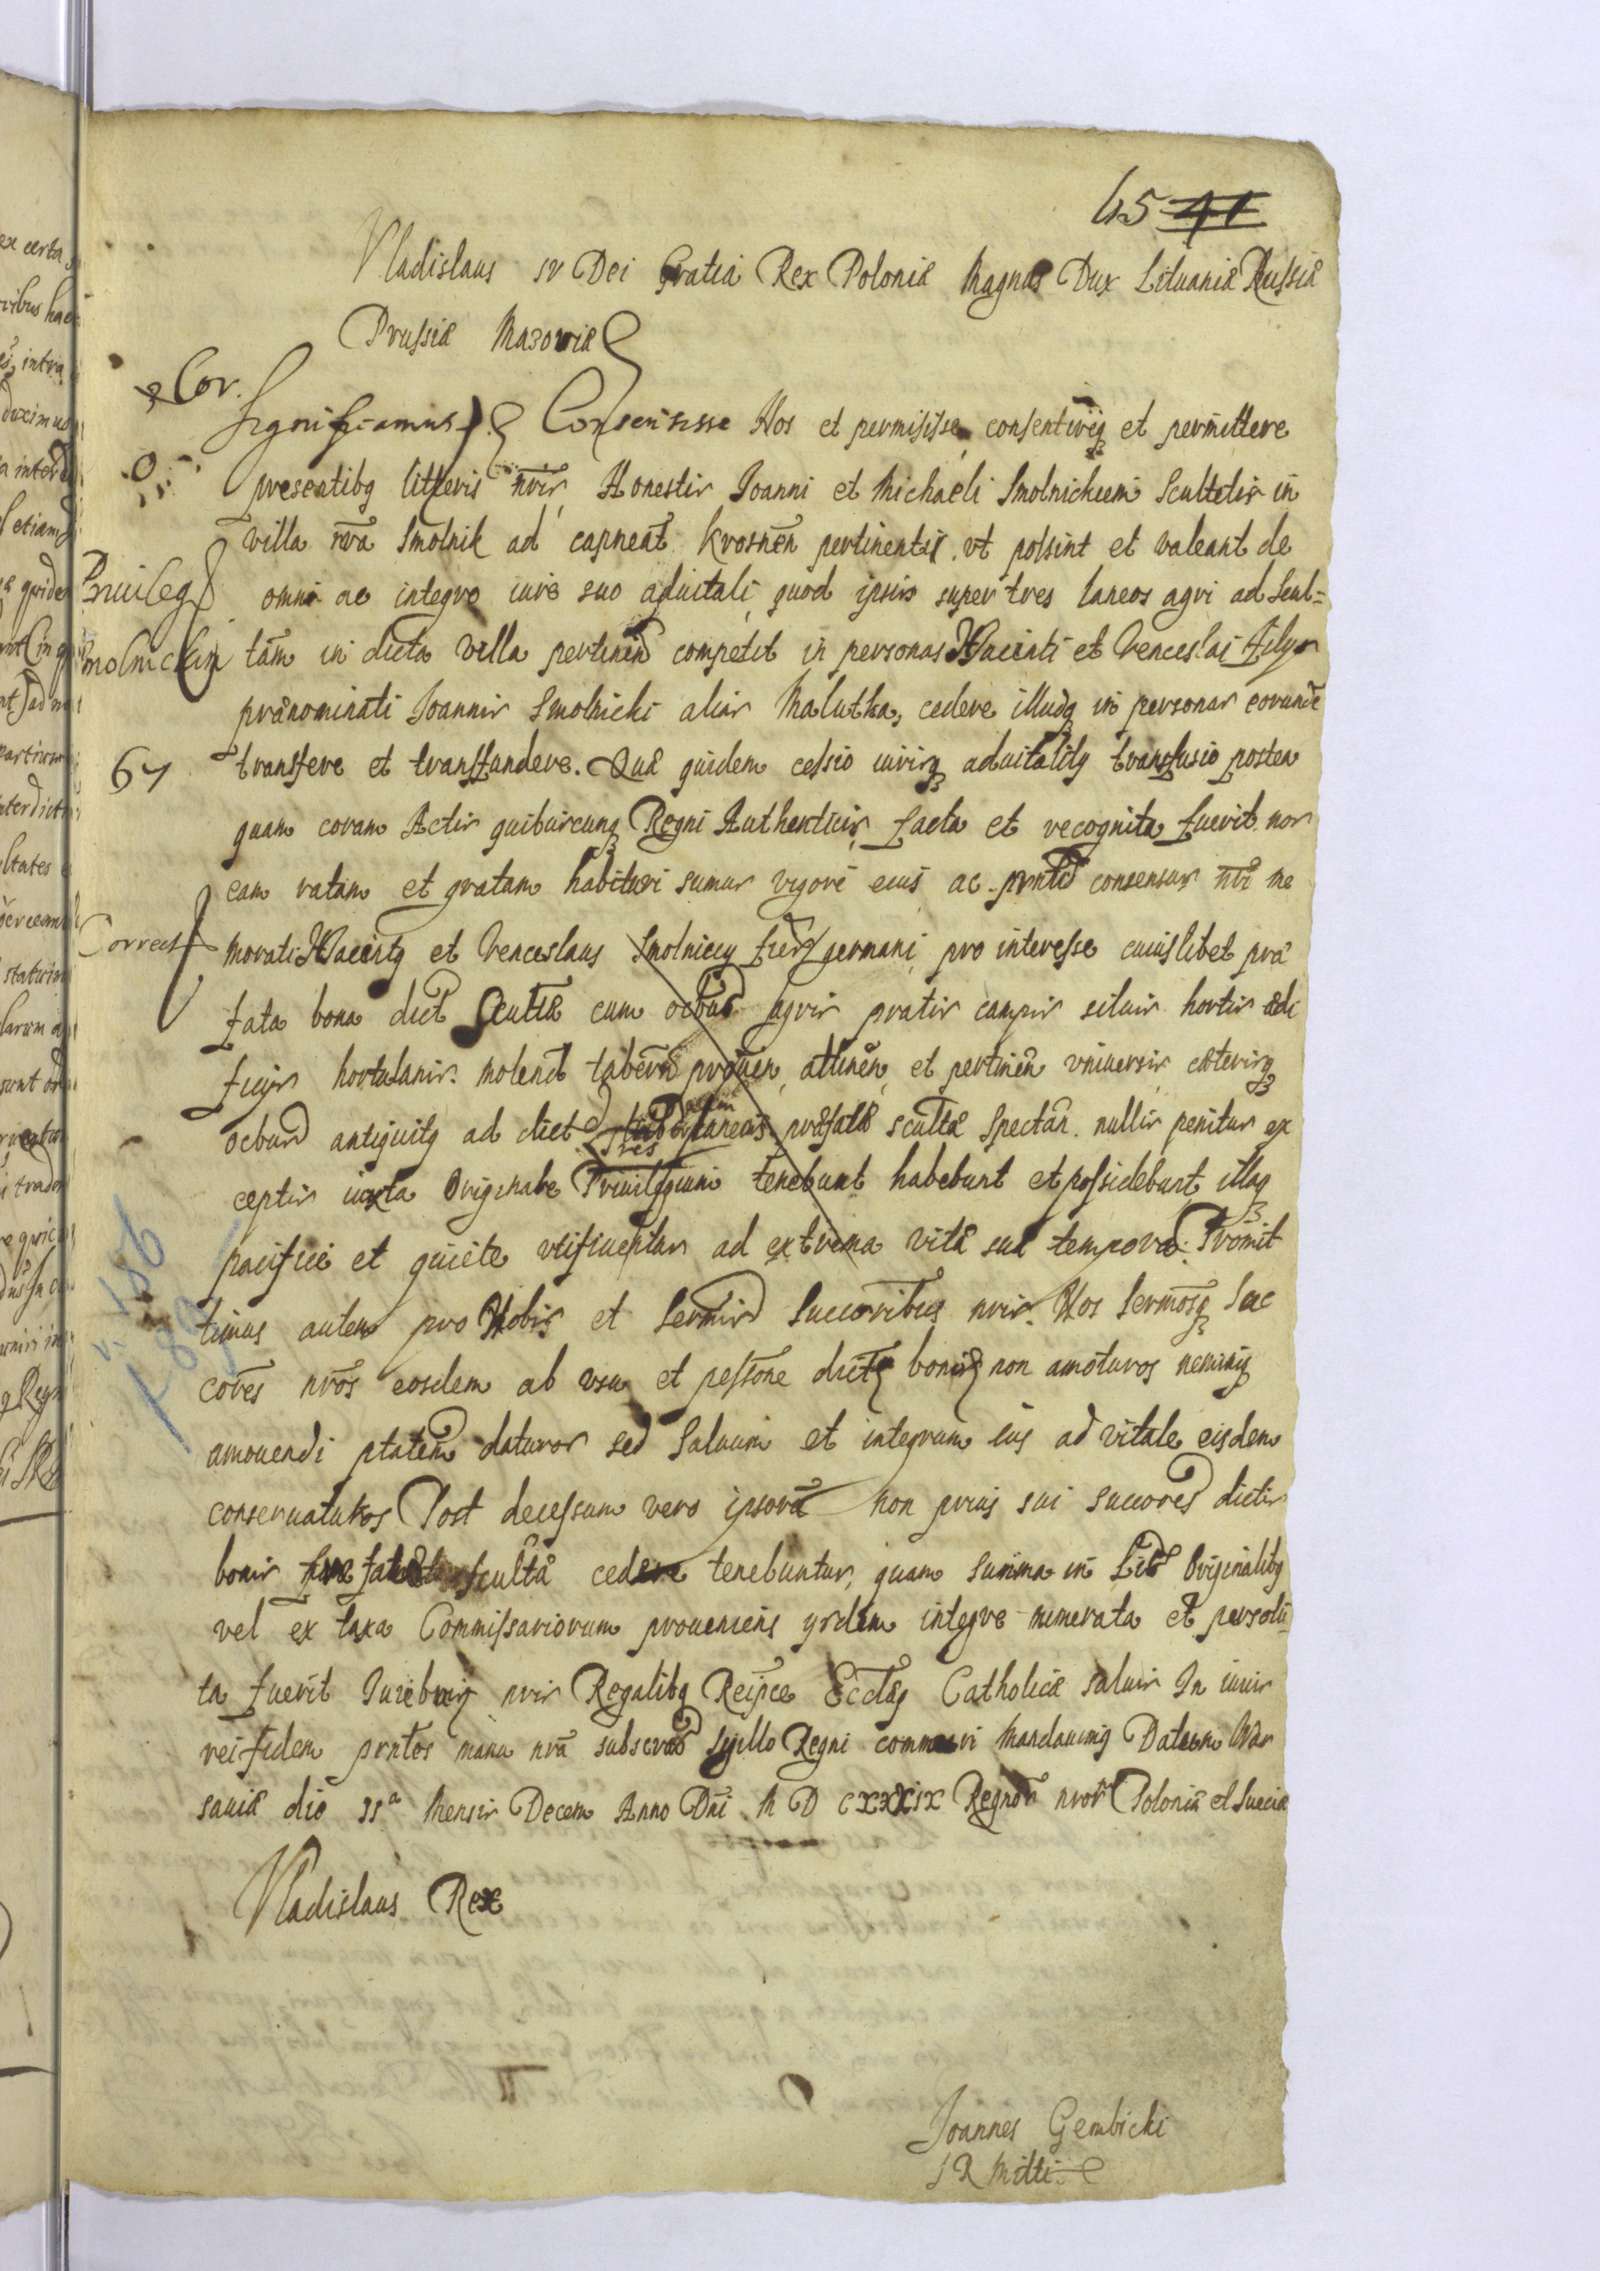 45 41
Vladislaus IV Dei Gratia Rex Poloniæ Magnus Dux Lituaniæ Russiæ
Prussiæ Mazoviæ
Cor.
Significamus Consensisse Nos et permisisse, consentireq et permittere
presentibq litteris nris, Honestis Joanni et Michaeli Smolnickiem Scultetis in
villa nra Smolnik ad capneat Krosnen pertinentis. vt possint et valeant de
Priuileg
omni ac integro iure suo aduitali, quod ipsis super tres laneos agri ad scul=
molnickim
tam in dicta villa pertinen competit in personas Hiacinti et Venceslai filyor
prænominati Joannis Smolnicki alias Malutka, cedere illudq in personas eorunde
67
transfere et transfundere. Quæ quidem cessio iurisq aduitalitq transfusio postea
quam coram Actis quibuscunq Regni Authenticis, facta et recognita fuerit. nos
eam ratam et gratam habituri sumus vigore eius ac prntis consensus nri me
Correct
morati Hiacintq et Venceslaus Smolniccy frēs germani, pro interesse cuiuslibet præ
fata bona dict Scultæ cum oēbus agris pratis campis siluis hortis ædi
ficijs hortulanis. molend tabern prouen, attinen, et pertinen vniuersis, cæterisq
oēbus antiquitq ad dict tres laneos præfatæ scultæ spectan. nullis penitus ex
ceptis iuxta originale Priuilegium tenebunt habebunt et possidebunt illaq
pacifice et quiete vtifruentur ad extrema vitæ suæ tempora. Promit
n. 186
timus autem pro Nobis et Sermis Succoribus nris. Nos Sermosq Suc
cores nros eosdem ab vsu et possone dictq bonis non amoturos neminiq
amouendi ptatem daturos sed saluum et integrum ius ad vitale eisdem
conseruaturos Post decessum vero ipsorū non prius sui succores dictis
bonis scultæ cedere tenebuntur, quam summa in Lit Originalibq
vel ex taxa Commissariorum proueniens ysdem integre numerata et persolu=
ta fuerit Juribusq nris Regalibq Reipce Ecclāq Catholicæ saluis In cuius
rei fidem prntes manu nra subscras Sigillo Regni communi mandauimq Datum War
sauiæ die Mensis Decem Anno Dni M D CXXXIX Regnor nror Poloniæ et Sueciæ
Vladislaus Rex
Joannes Gembicki